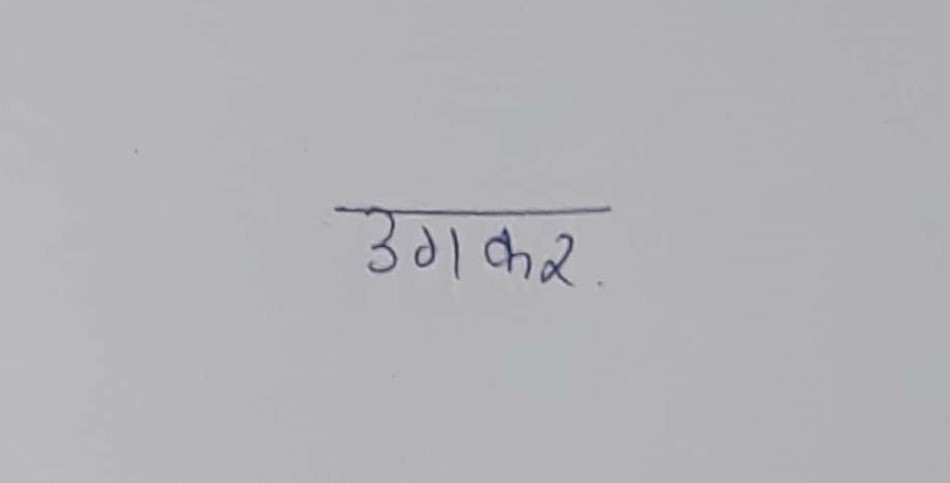 उगकर.